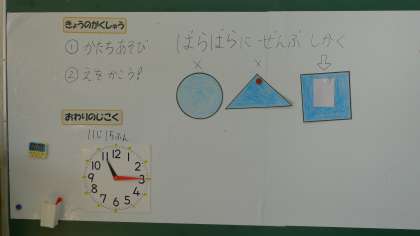 きょうのがくしゅう
① かたちあそび
② えを かこう！
おわりのじこく
11じ15ふん
12
1
2
3
4
5
6
7
8
9
10
11
ばらばらに ぜんぶ しかく
× ×